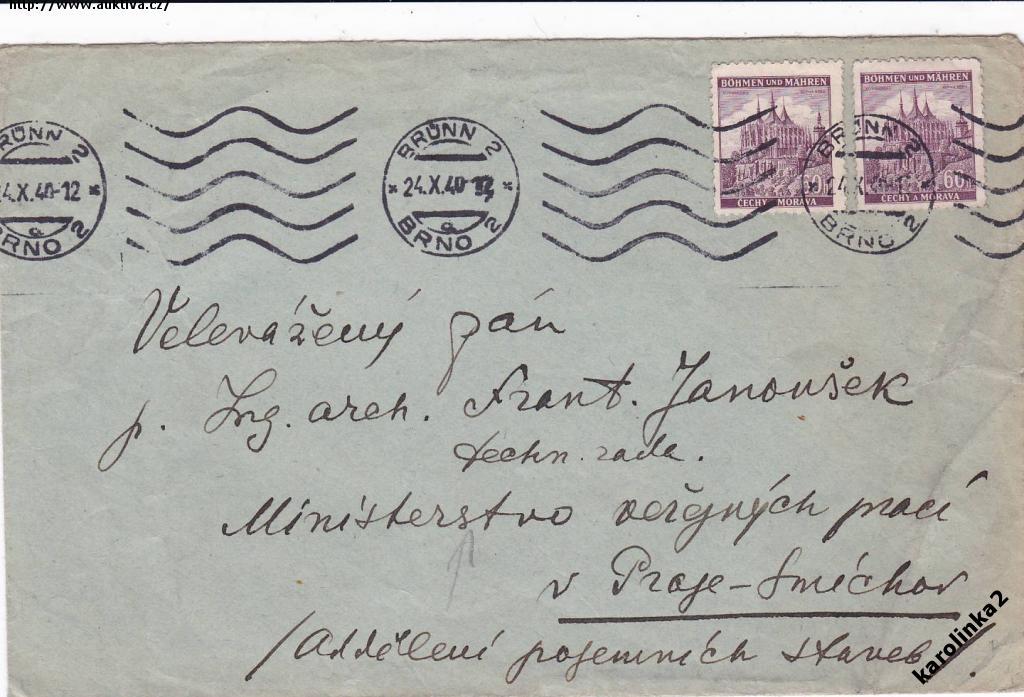 http://www.auktiva.cz/
BÖHMEN UND MÄHREN
BÖHMEN UND MÄHREN
60h
ČECHY A MORAVA
ČECHY A MORAVA
BRÜNN 2
24.X.40-12
a
BRNO 2
BRÜNN 2
* 24.X.40-12 *
a
BRNO 2
BRÜNN 2
* 24.X.40
BRNO 2
Velevážený pán
p. Ing. arch. Frant. Janoušek
techn. rada.
Ministerstvo veřejných prací
v Praze-Smíchov
/Oddělení pozemních staveb
karolinka2